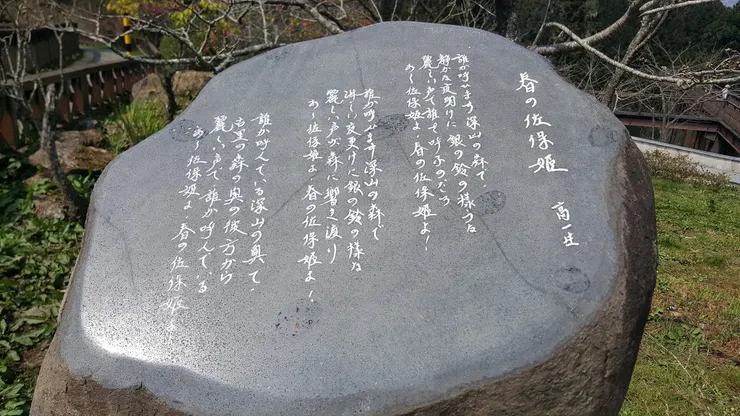 春の佐保姫
高一生
誰か呼びます深山の森で、
静かな夜明けに 銀の鈴の様な
麗しい声で 誰を呼ぶのだろう
あ～佐保姫よ、春の佐保姫よ！
誰か呼びます深山の森で
淋しい夜更けに 銀の鈴の様な
麗しい声が 森に響き渡り
あ～佐保姫よ、春の佐保姫よ！
誰か呼んでいる深山の奥で、
古里の森の奥の彼方から
麗しい声で 誰か呼んでいる
あ～佐保姫よ、春の佐保姫よ